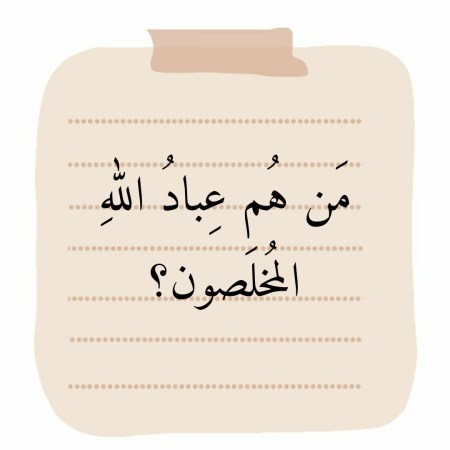 مَن هُم عِبادُ اللهِ
المُخلَصون؟